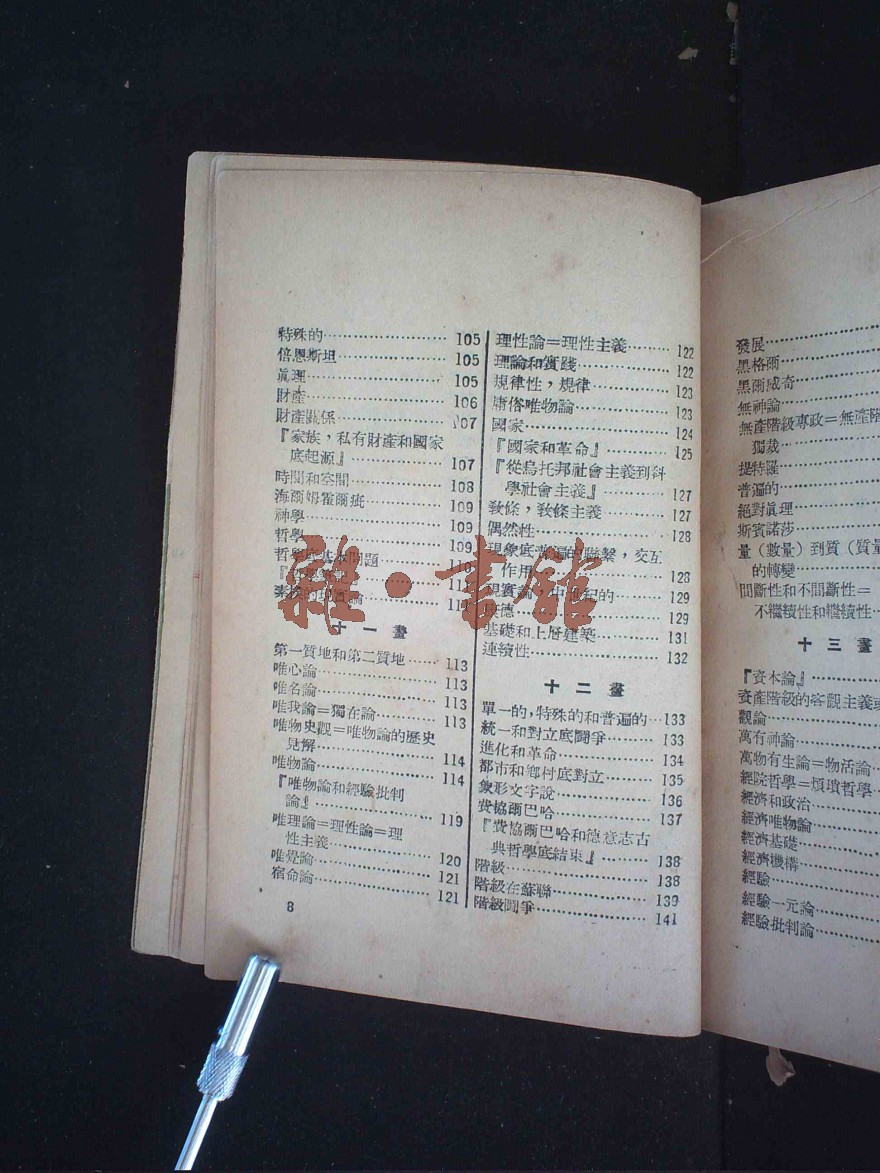 特殊的 105
倍恩斯坦 105
眞理 105
財產 106
財產關係 107
『家族，私有財產和國家
底起源』 107
時間和空間 108
海爾姆霍爾兹 109
神學 109
哲學 109
哲學底基本問題
素樸的現實論
十一畫
第一質地和第二質地 113
唯心論 113
唯名論 113
唯我論＝獨在論 113
唯物史觀＝唯物論的歷史
見解 114
唯物論 114
『唯物論和經驗批判
論』 119
唯理論＝理性論＝理
性主義 120
唯覺論 121
宿命論 121
8
理性論＝理性主義 122
理論和實踐 122
規律性，規律 123
庸俗唯物論 123
國家 124
『國家和革命』 125
『從烏托邦社會主義到科
學社會主義』 127
敎條，敎條主義 127
偶然性 128
現象底普遍的聯繫，交互
作用 128
現實論，中世紀的 129
康德 129
基礎和上層建築 131
連續性 132
十二畫
單一的，特殊的和普遍的 133
統一和對立底鬭爭 133
進化和革命 134
都市和鄉村底對立 135
象形文字說 136
費協爾巴哈 137
『費協爾巴哈和德意志古
典哲學底結束』 138
階級 138
階級在蘇聯 139
階級鬭爭 141
發展
黑格爾
黑爾威奇
無神論
無產階級專政＝無產階
獨裁
提特羅
普遍的
絕對眞理
斯賓諾莎
量（數量）到質（質量
的轉變
間斷性和不間斷性＝
不繼續性和繼續性
十三畫
『資本論』
資產階級的客觀主義
觀論
萬有神論
萬物有生論＝物活論
經院哲學＝煩瑣哲學
經濟和政治
經濟唯物論
經濟基礎
經濟機構
經驗
經驗一元論
經驗批判論
雜·書館